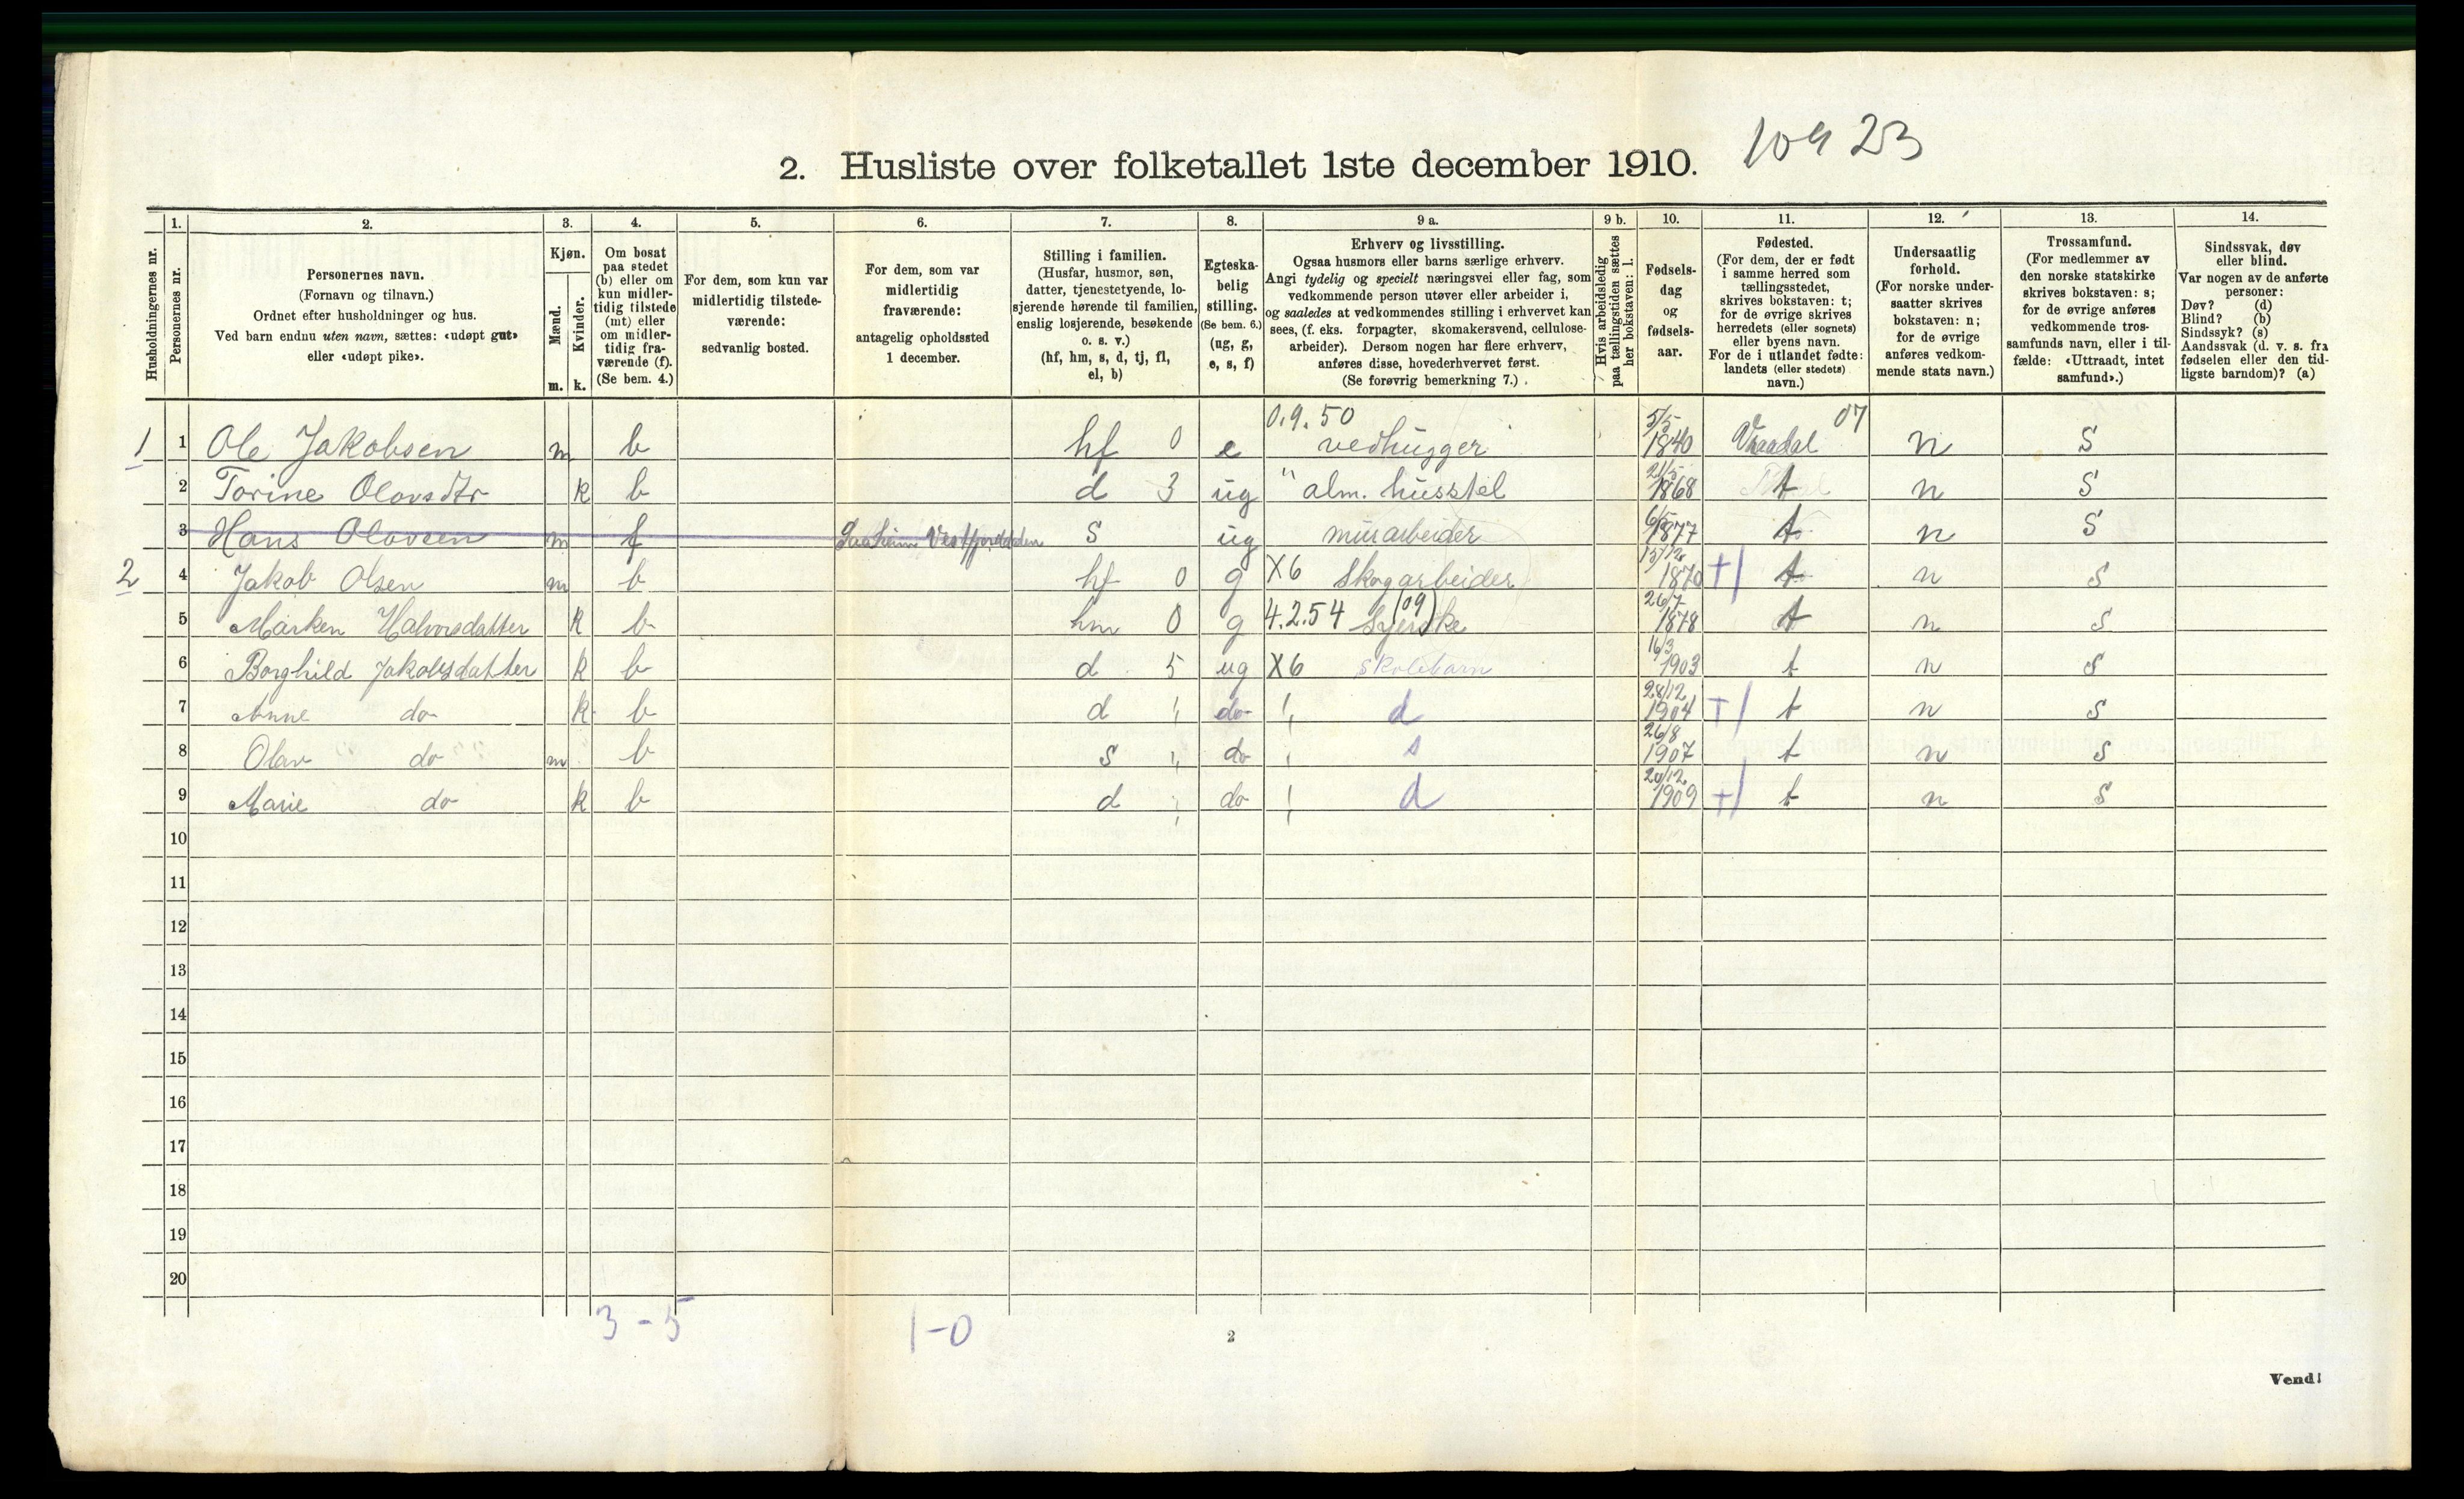 2. Husliste over folketallet 1ste december 1910. 109 23
Husholdningernes nr.
1.
Personernes nr.
2.
Personernes navn.
(Fornavn og tilnavn.)
Ordnet efter husholdninger og hus.
Ved barn endnu uten navn, sættes: «udøpt gut»
eller «udøpt pike».
3.
Kjøn.
Mænd. Kvinder.
m. k.
4.
Om bosat
paa stedet
(b) eller om
kun midler-
tidig tilstede
(mt) eller
om midler-
tidig fra-
værende (f).
(Se bem. 4.)
5.
For dem, som kun var
midlertidig tilstede-
værende:
sedvanlig bosted.
6.
For dem, som var
midlertidig
fraværende:
antagelig opholdssted
1 december.
7.
Stilling i familien.
(Husfar, husmor, søn,
datter, tjenestetyende, lo-
sjerende hørende til familien,
enslig losjerende, besøkende
o. s. v.)
(hf, hm, s, d, tj, fl,
el, b)
8.
Egteska-
belig
stilling.
(Se bem. 6.)
(ug, g,
e, s, f)
9 a.
Erhverv og livsstilling.
Ogsaa husmors eller barns særlige erhverv.
Angi tydelig og specielt næringsvei eller fag, som
vedkommende person utøver eller arbeider i,
og saaledes at vedkommendes stilling i erhvervet kan
sees, (f. eks. forpagter, skomakersvend, cellulose-
arbeider). Dersom nogen har flere erhverv,
anføres disse, hovederhvervet først.
(Se forøvrig bemerkning 7.)
9 b.
Hvis arbeidsledig
paa tællingstiden sættes
her bokstaven: l.
10.
Fødsels-
dag
og
fødsels-
aar.
11.
Fødested.
(For dem, der er født
i samme herred som
tællingsstedet,
skrives bokstaven: t;
for de øvrige skrives
herredets (eller sognets)
eller byens navn.
For de i utlandet fødte:
landets (eller stedets)
navn.)
12.
Undersaatlig
forhold.
(For norske under-
saatter skrives
bokstaven: n;
for de øvrige
anføres vedkom-
mende stats navn.)
13.
Trossamfund.
(For medlemmer av
den norske statskirke
skrives bokstaven: s;
for de øvrige anføres
vedkommende tros-
samfunds navn, eller i til-
fælde: «Uttraadt, intet
samfund».)
14.
Sindssvak, døv
eller blind.
Var nogen av de anførte
personer:
Døv? (d)
Blind? (b)
Sindssyk? (s)
Aandssvak (d. v. s. fra
fødselen eller den tid-
ligste barndom)? (a)
1 1 Ole Jakobsen m b hf 0 e 0.9.50 vedhugger 5/5 1840 Vraadal 07 n S
2 Torine Olavsdtr k b d 3 ug " alm. husstel 21/5 1868 t n S
3 Hans Olavsen m f Vestfjorddalen S ug murarbeider 1877 t n S
2 4 Jakob Olsen m b hf 0 g X6 Skogarbeider 15/12 1870 +/ t n S
5 Marken Halvorsdatter k b hm 0 g 4.2.54 (09) Syerske 26/7 1878 t n S
6 Borghild Jakobsdatter k b d 5 ug X6 skolebarn 16/3 1903 t n S
7 Anne do k b d " do " d 28/12 1904 +/ t n S
8 Olav do m b s " do " s 26/8 1907 t n S
9 Marie do k b d " do " d 20/12 1909 +/ t n S
10
11
12
13
14
15
16
17
18
19
20
3 - 5 1-0
2
Vend!